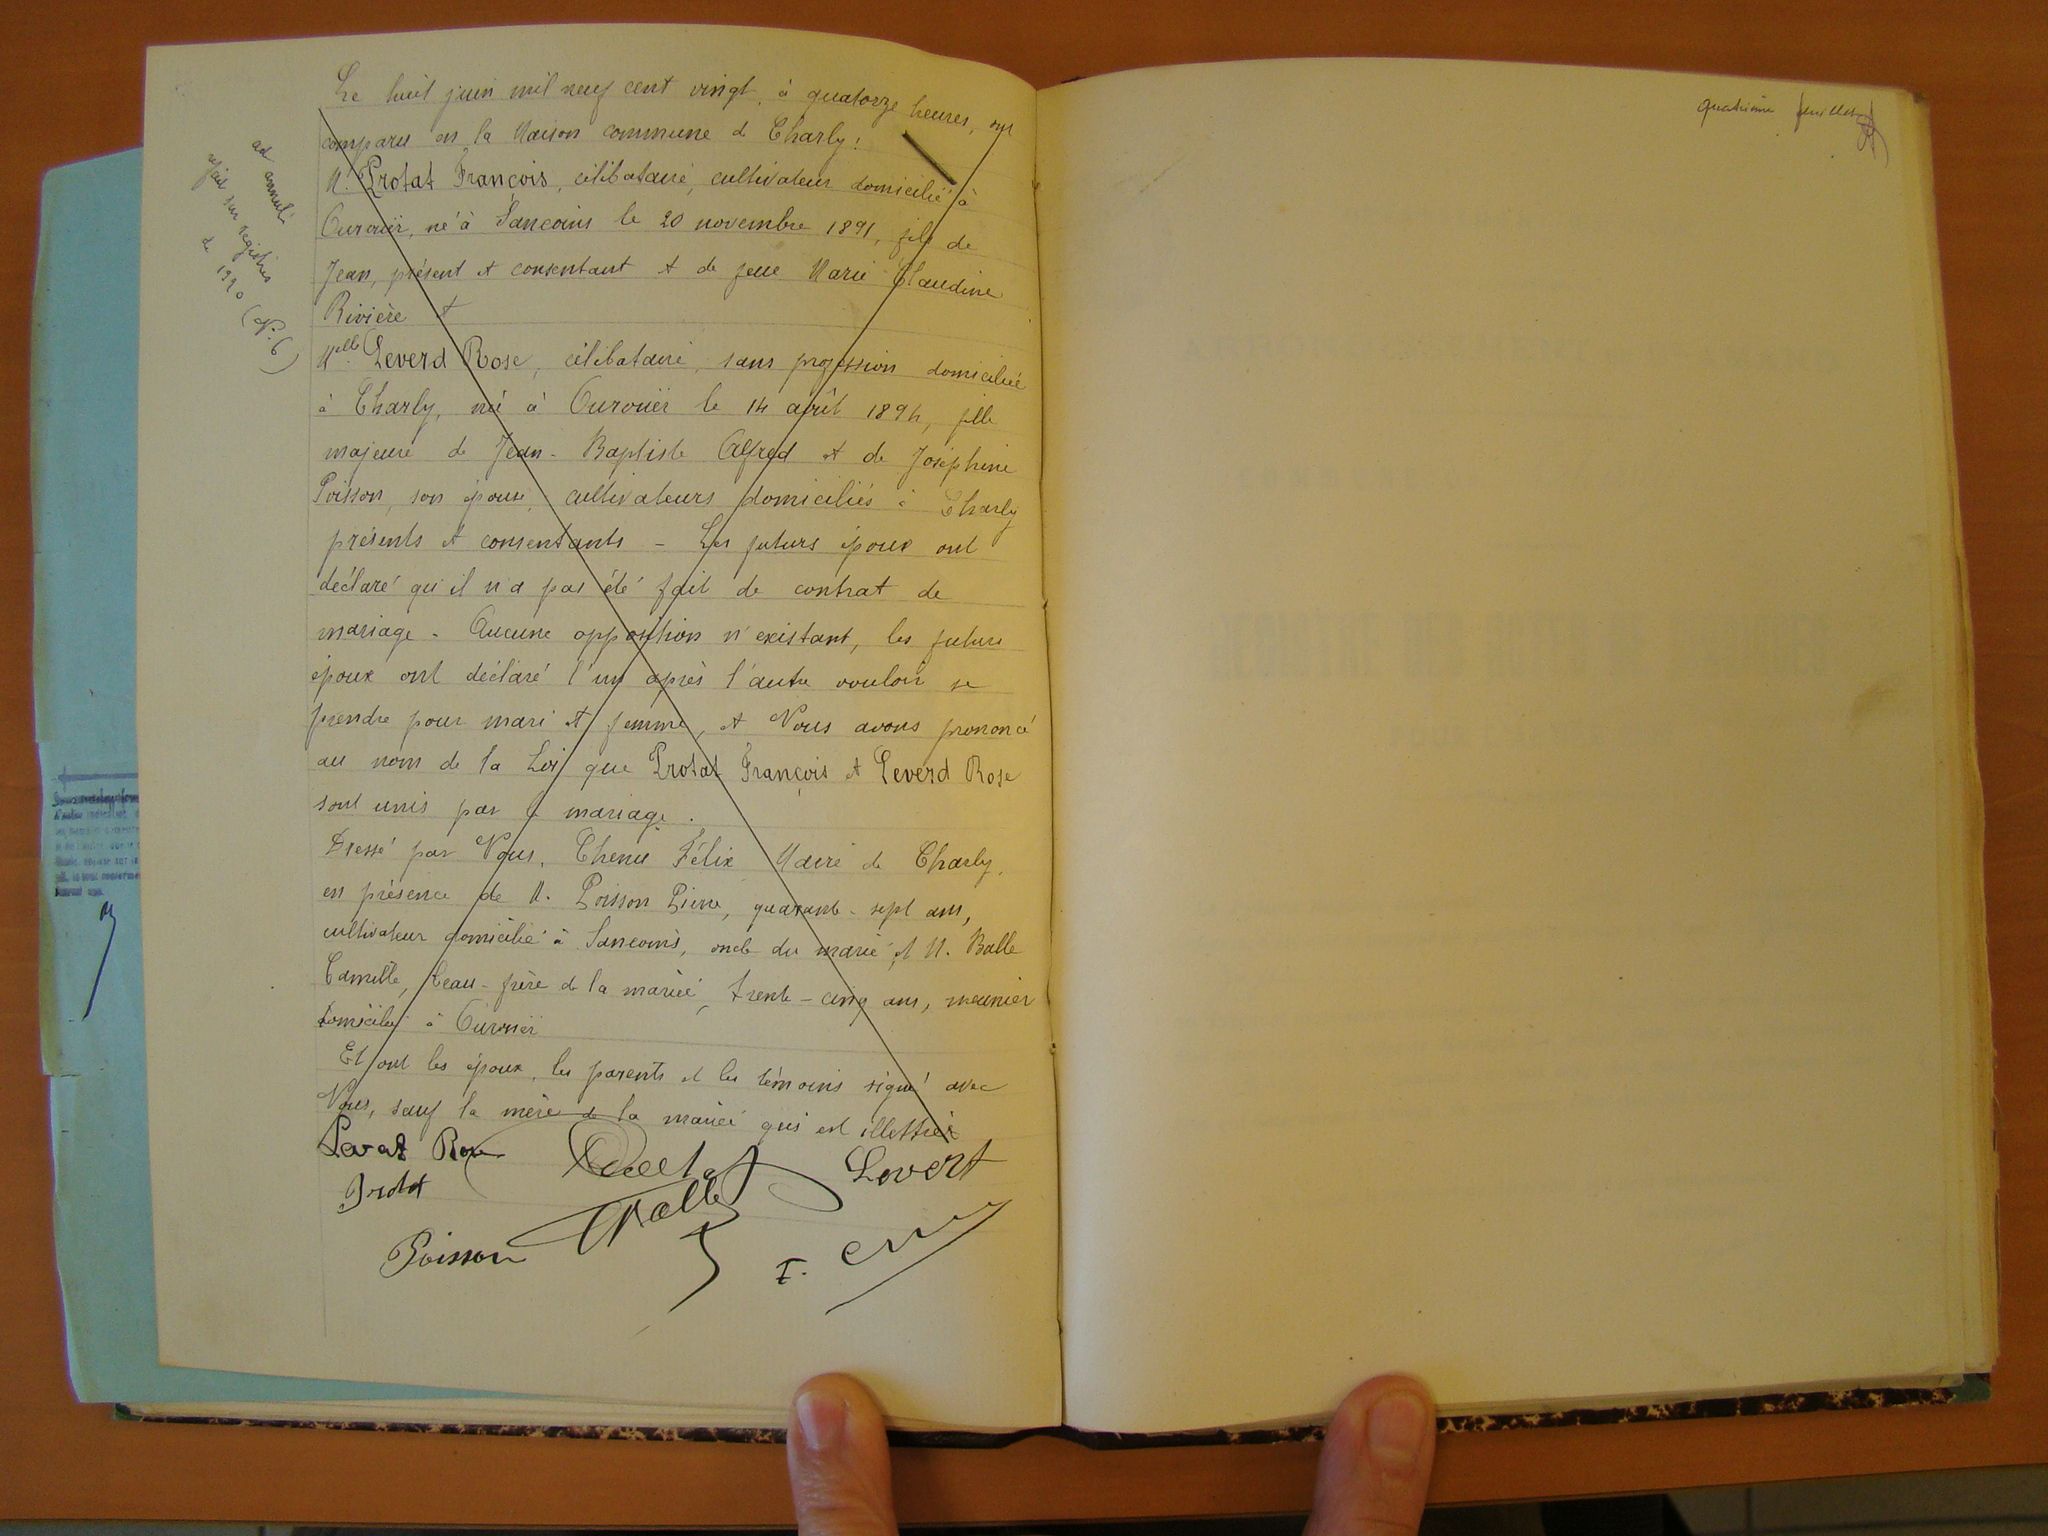 Le huit juin mil neuf cent vingt, à quatorze heures, ont
comparu en la Maison commune de Charly :
M. Protat François, célibataire, cultivateur domicilié à
Ourouër, né à Sancoins le 20 novembre 1891, fils de
Jean, présent et consentant et de feue Marie Claudine
Rivière et
Melle Leverd Rose, célibataire, sans profession domiciliée
à Charly, née à Ourouër le 14 avril 1894, fille
majeure de Jean-Baptiste Alfred et de Joséphine
Poisson, son épouse, cultivateurs domiciliés à Charly
présents et consentants - Les futurs époux ont
déclaré qu'il n'a pas été fait de contrat de
mariage - Aucune opposition n'existant, les futurs
époux ont déclaré l'un après l'autre vouloir se
prendre pour mari et femme, et Nous avons prononcé
au nom de la Loi que Protat François et Leverd Rose
sont unis par le mariage.
Dressé par Nous, Chenu Félix Maire de Charly,
en présence de M. Poisson Pierre, quarante-sept ans,
cultivateur domicilié à Sancoins, oncle du marié, et M. Balle
Camille, beau-frère de la mariée, trente-cinq ans, meunier
domicilié à Ourouër
Et ont les époux, les parents et les témoins signé avec
Nous, sauf la mère de la mariée qui est illettrée
Rose
Levert
Protat
Balle
Poisson
F.
annulé
refait sur registres
de 1920 (N. 6)
quatrième feuillet